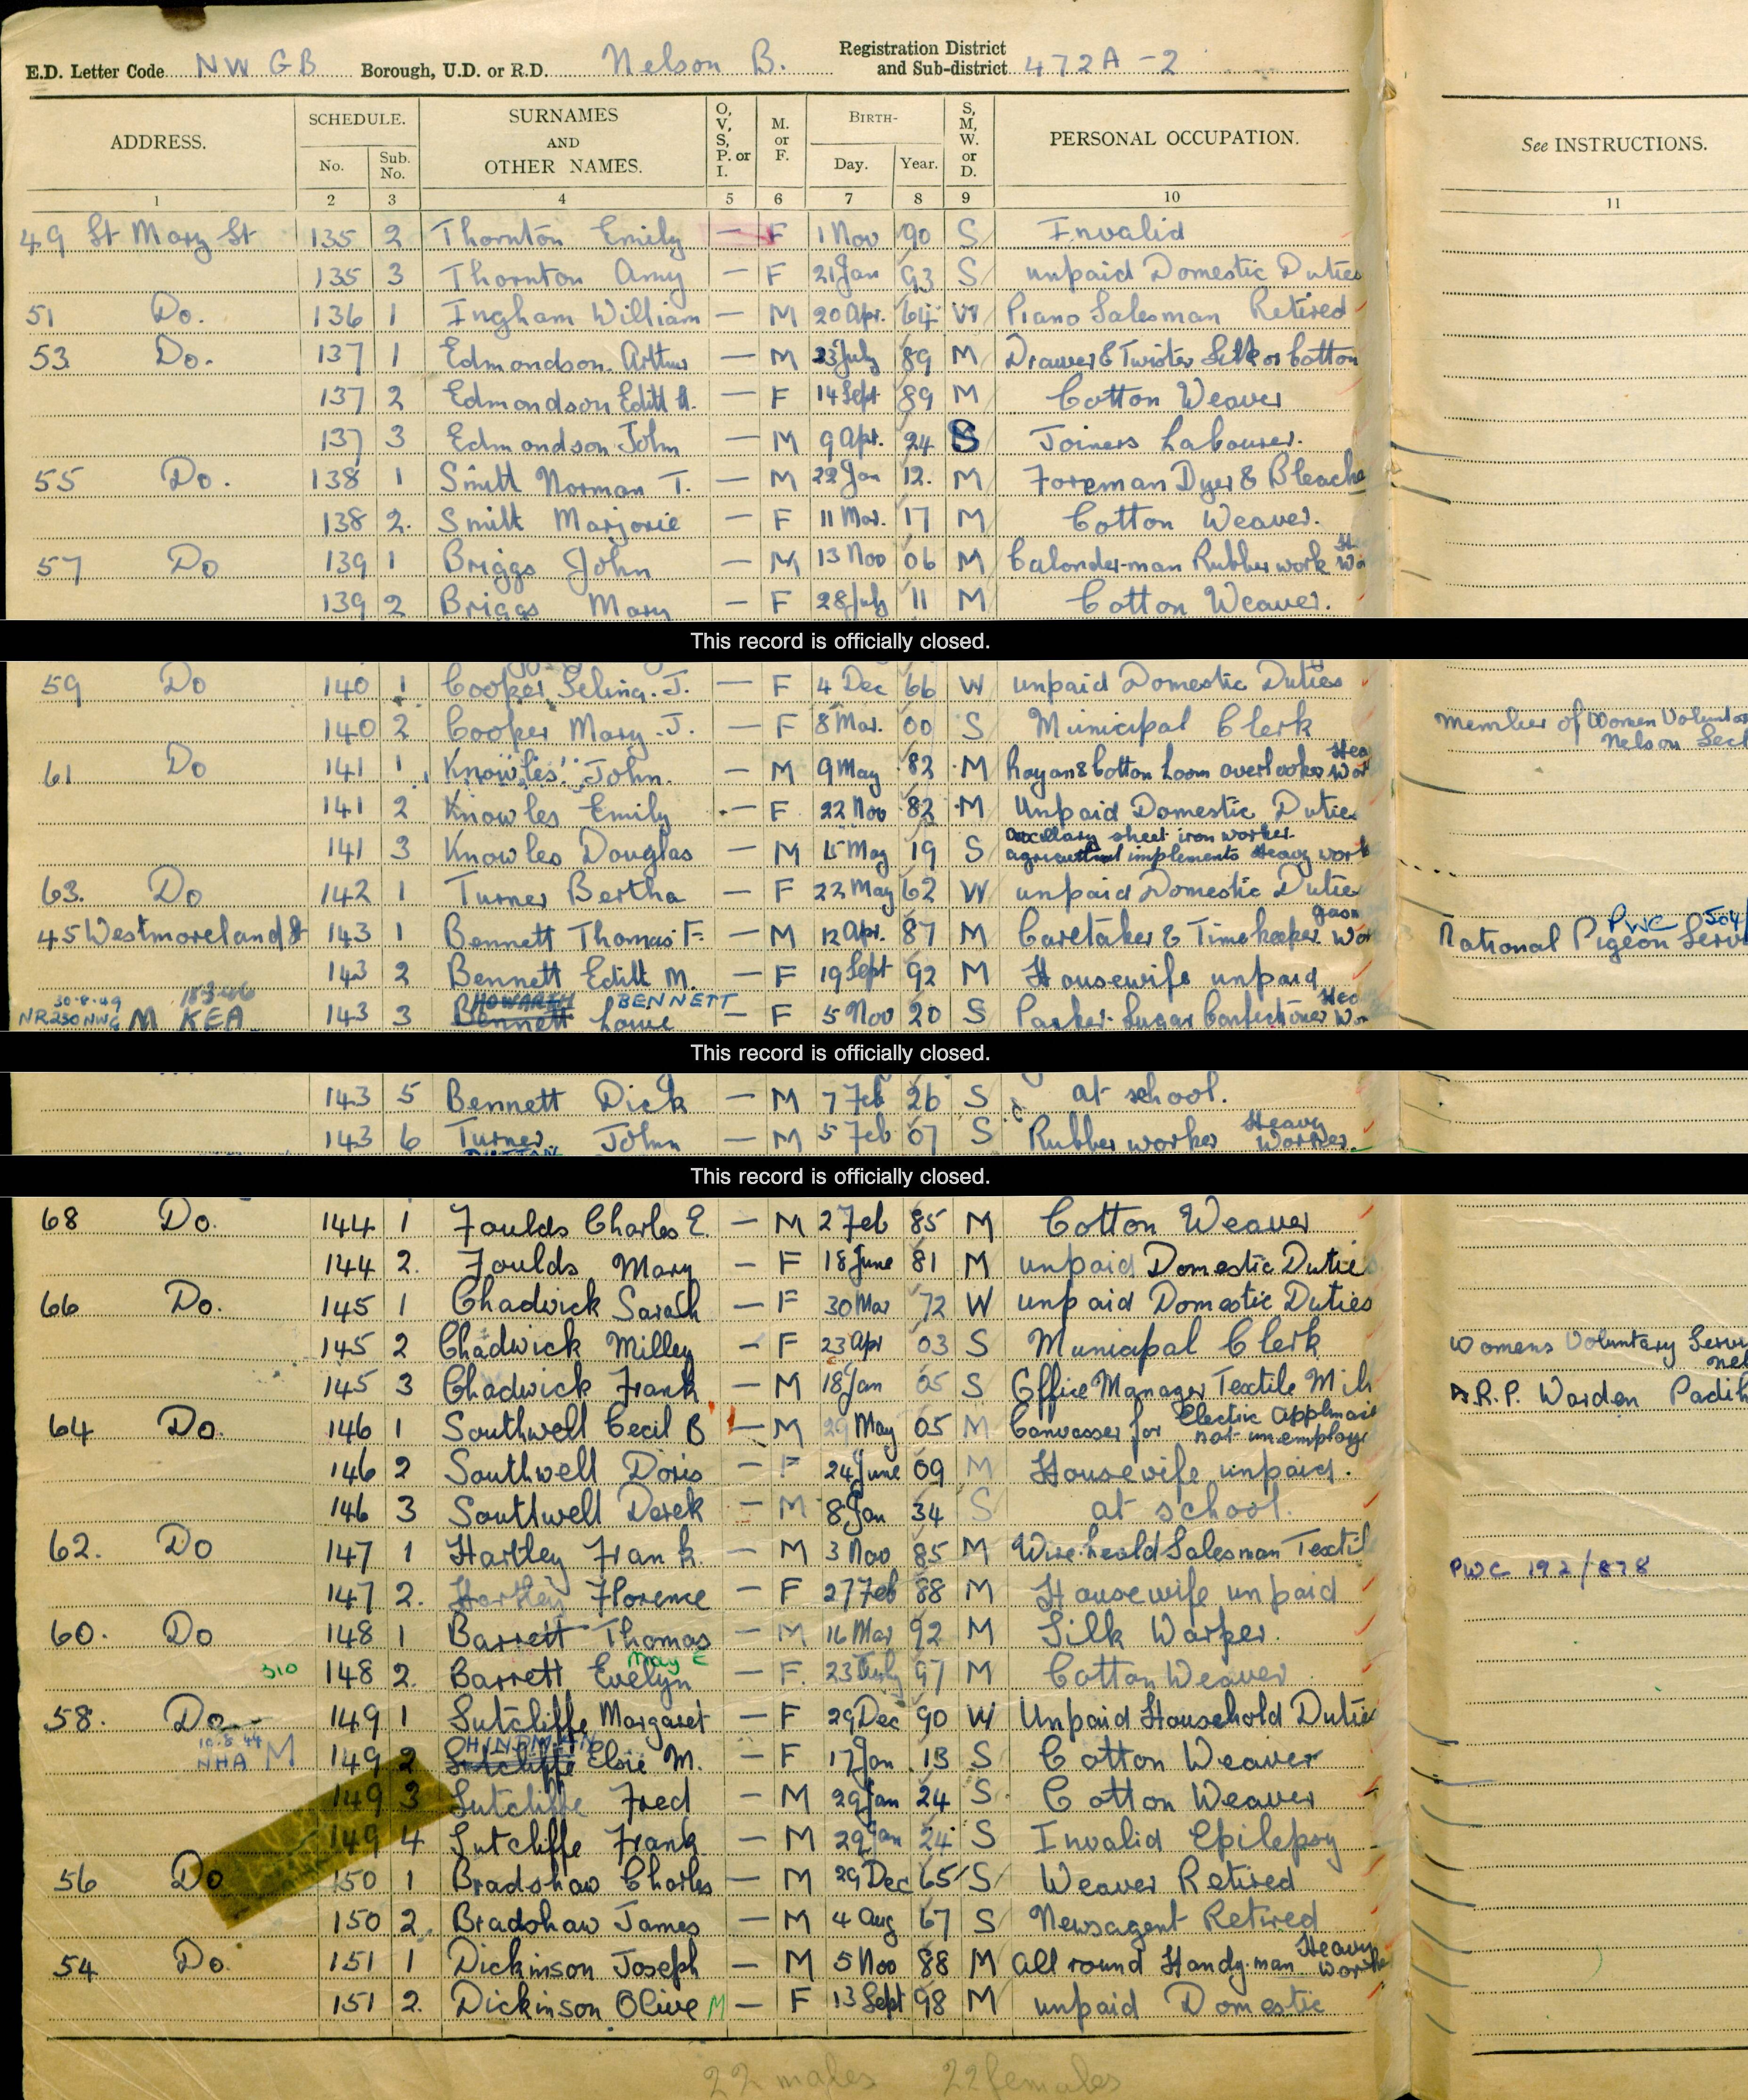 E.D. Letter Code NW GB Borough, U.D. or R.D. Nelson B. Registration District and Sub-district 472A-2
ADDRESS. SCHEDULE. No. Sub. No. SURNAMES AND OTHER NAMES. O, V, S, P. or I. M. or F. BIRTH- Day. Year. S, M, W. or D. PERSONAL OCCUPATION. See INSTRUCTIONS.
1 2 3 4 5 6 7 8 9 10 11
49 St Mary St 135 2 Thornton Emily — F 1 Nov 90 S Invalid
135 3 Thornton Amy — F 21 Jan 93 S unpaid Domestic Duties
51 Do. 136 1 Ingham William — M 20 Apr. 64 W Piano Salesman Retired
53 Do. 137 1 Edmondson Arthur — M 23 July 89 M Drawer & Twister Silk or Cotton
137 2 Edmondson Edith A. — F 14 Sept 89 M Cotton Weaver
137 3 Edmondson John — M 9 Apr. 24 S Joiners Labourer.
55 Do. 138 1 Smith Norman T. — M 22 Jan 12. M Foreman Dyer & Bleache
138 2. Smith Marjorie — F 11 Mar. 17 M Cotton Weaver.
57 Do 139 1 Briggs John — M 13 Nov 06 M Calender-man Rubber work
139 2 Briggs Mary — F 28 July 11 M Cotton Weaver.
This record is officially closed.
59 Do 140 1 Cooper Selina. J. — F 4 Dec 66 W unpaid Domestic Duties
140 2 Cooper Mary. J. — F 8 Mar. 00 S Municipal Clerk Member of Women Voluntar
Nelson Sect
61 Do 141 1 Knowles John. — M 9 May 82 M Rayon & Cotton Loom overlooker Hea Wor
141 2 Knowles Emily — F 22 Nov 82 M Unpaid Domestic Dutie
141 3 Knowles Douglas — M 15 May 19 S sheet iron worker.
agricultural implements Heavy work
63. Do 142 1 Turner Bertha — F 22 May 62 W unpaid Domestic Dutie
PWC 504/
45 Westmoreland St 143 1 Bennett Thomas F. — M 12 Apr. 87 M Caretaker & Timekeeper. Wor National Pigeon Serv
143 2 Bennett Edith M. — F 19 Sept 92 M Housewife unpaid
30.8.49 18.3.46 HOWARTH BENNETT
NR230NWG M KEA 143 3 Bennett — F 5 Nov 20 S Packer. Sugar Confectioner Hea Wo
This record is officially closed.
143 5 Bennett Dick — M 7 Feb 26 S at school.
143 6 Turner John — M 5 Feb 07 S Rubber worker Heavy Worker.
This record is officially closed.
68 Do. 144 1 Foulds Charles E. — M 2 Feb 85 M Cotton Weaver
144 2. Foulds Mary — F 18 June 81 M unpaid Domestic Dutie
66 Do. 145 1 Chadwick Sarah — F 30 Mar 72 W unpaid Domestic Duties
145 2 Chadwick Milley — F 23 Apr 03 S Municipal Clerk Womens Voluntary Serv
Nel
145 3 Chadwick Frank — M 18 Jan 05 S Office Manager Textile Mill A.R.P. Warden Padih
64 Do. 146 1 Southwell Cecil B — M 29 May 05 M Canvasser for Electric Applian
not unemploye
146 2 Southwell Doris — F 24 June 09 M Housewife unpaid.
146 3 Southwell Derek — M 8 Jan 34 S at school.
62. Do 147 1 Hartley Frank. — M 3 Nov 85 M Wire heald Salesman Textil PWC 192/878
147 2. Hartley Florence — F 27 Feb 88 M Housewife unpaid
60. Do 148 1 Barrett Thomas — M 16 Mar 92 M Silk Warper.
May E
310 148 2. Barrett Evelyn — F. 23 July 97 M Cotton Weaver
58. Do 149 1 Sutcliffe Margaret — F 29 Dec 90 W Unpaid Household Dutie
10.8.44 HINDMAN
NHA M 149 2 Sutcliffe Elsie M. — F 17 Jan 13 S Cotton Weaver
149 3 Sutcliffe Fred — M 29 Jan 24 S Cotton Weaver
149 4 Sutcliffe Frank — M 29 Jan 24 S Invalid Epilepsy
56 Do 150 1 Bradshaw Charles — M 29 Dec 65 S Weaver Retired
150 2. Bradshaw James — M 4 Aug 67 S Newsagent Retired
54 Do. 151 1 Dickinson Joseph — M 5 Nov 88 M All round Handy-man Heavy Worke
151 2. Dickinson Olive M — F 13 Sept 98 M unpaid Domestic
22 males 22 females